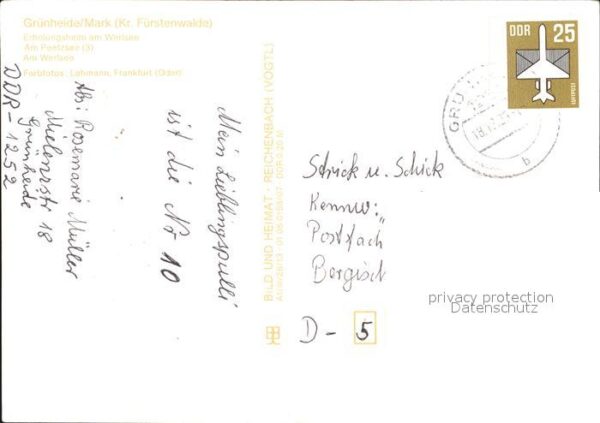 Grünheide/Mark (Kr. Fürstenwalde)
Erholungsheim am Werlsee
Am Peetzsee (3)
Am Werlsee
Farbfotos: Lehmann, Frankfurt (Oder)
Abs: Rosemarie Müller
Mielenzstr 18
Grünheide
DDR-1252
Mein Lieblingspulli
ist die Nr 10
BILD UND HEIMAT · REICHENBACH (VOGTL)
DDR
25
LUFTPOST
b
Strick u. Schick
Kennw:
Postfach
Bergisch
D- 5
privacy protection
Datenschutz